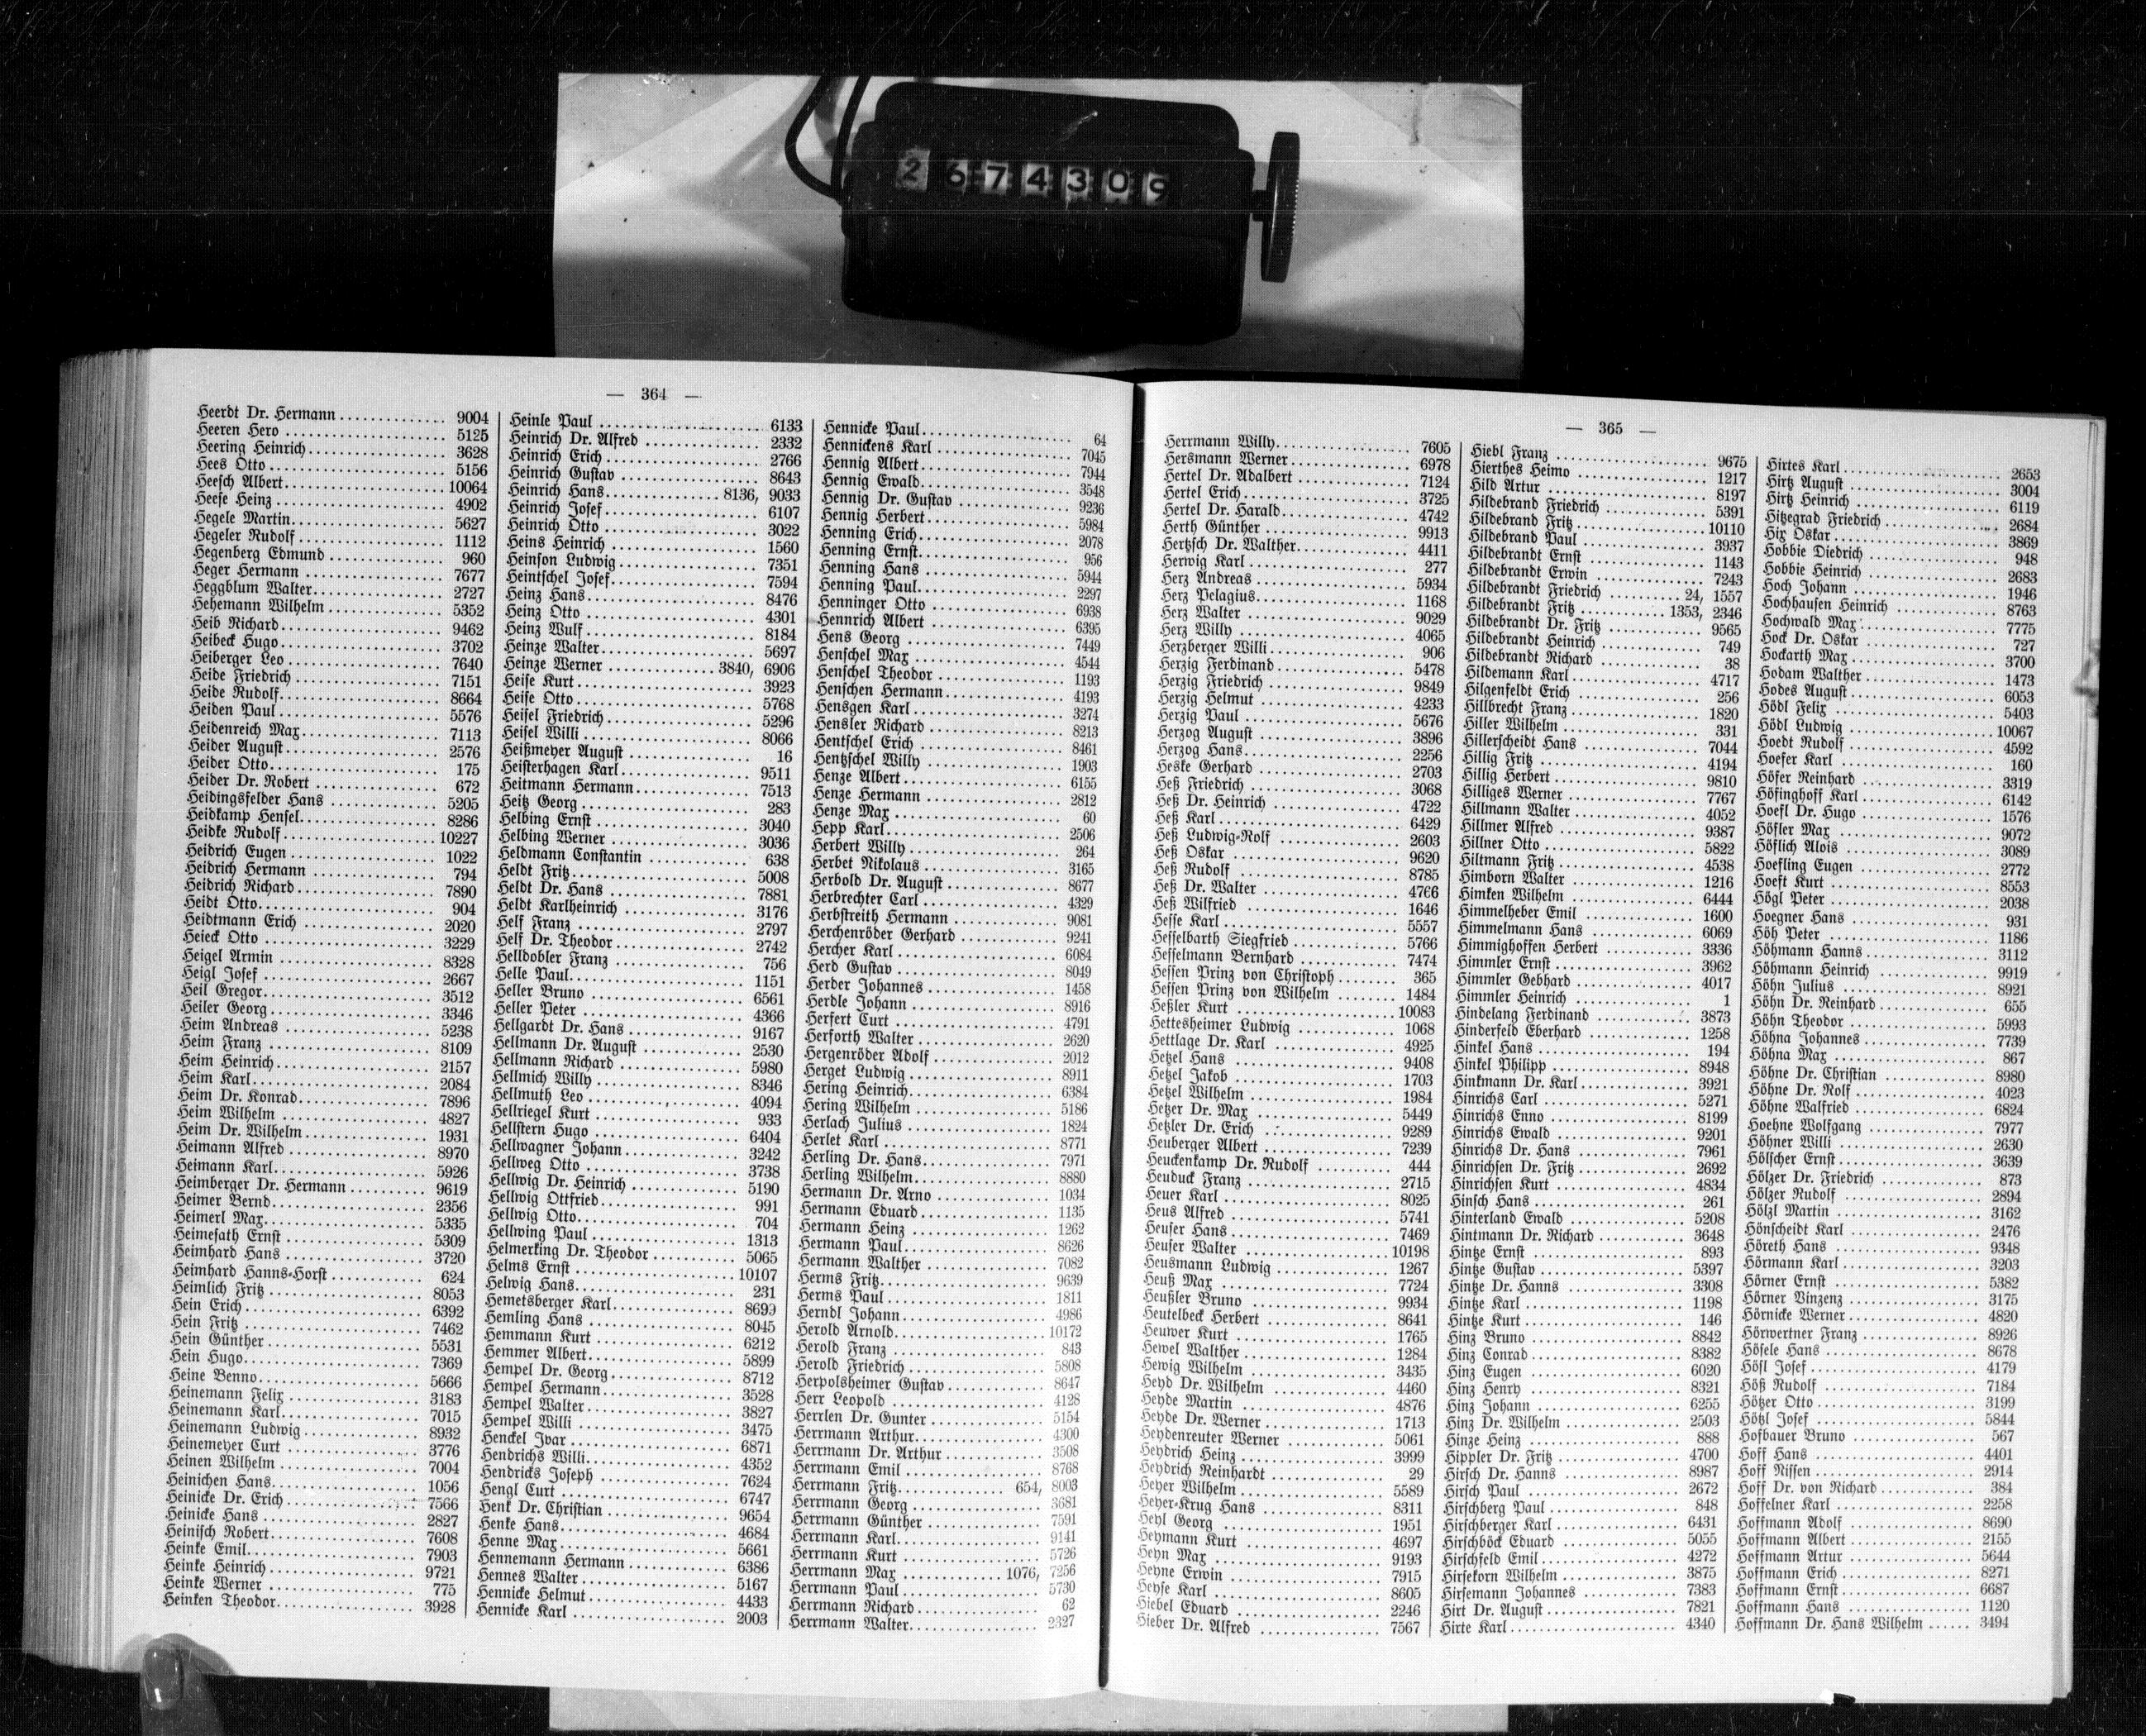 2674309
— 364 —
Heerdt Dr. Hermann 9004
Heeren Hero 5125
Heering Heinrich 3628
Hees Otto 5156
Heesch Albert 10064
Heese Heinz 4902
Hegele Martin 5627
Hegeler Rudolf 1112
Hegenberg Edmund 960
Heger Hermann 7677
Heggblum Walter 2727
Hehemann Wilhelm 5352
Heib Richard 9462
Heibeck Hugo 3702
Heiberger Leo 7640
Heide Friedrich 7151
Heide Rudolf 8664
Heiden Paul 5576
Heidenreich Max 7113
Heider August 2576
Heider Otto 175
Heider Dr. Robert 672
Heidingsfelder Hans 5205
Heidkamp Hensel 8286
Heidke Rudolf 10227
Heidrich Eugen 1022
Heidrich Hermann 794
Heidrich Richard 7890
Heidt Otto 904
Heidtmann Erich 2020
Heieck Otto 3229
Heigel Armin 8328
Heigl Josef 2667
Heil Gregor 3512
Heiler Georg 3346
Heim Andreas 5238
Heim Franz 8109
Heim Heinrich 2157
Heim Karl 2084
Heim Dr. Konrad 7896
Heim Wilhelm 4827
Heim Dr. Wilhelm 1931
Heimann Alfred 8970
Heimann Karl 5926
Heimberger Dr. Hermann 9619
Heimer Bernd 2356
Heimerl Max 5335
Heimesath Ernst 5309
Heimhard Hans 3720
Heimhard Hanns-Horst 624
Heimlich Fritz 8053
Hein Erich 6392
Hein Fritz 7462
Hein Günther 5531
Hein Hugo 7369
Heine Benno 5666
Heinemann Felix 3183
Heinemann Karl 7015
Heinemann Ludwig 8932
Heinemeyer Curt 3776
Heinen Wilhelm 7004
Heinichen Hans 1056
Heinicke Dr. Erich 7566
Heinicke Hans 2827
Heinisch Robert 7608
Heinke Emil 7903
Heinke Heinrich 9721
Heinke Werner 775
Heinken Theodor 3928
Heinle Paul 6133
Heinrich Dr. Alfred 2332
Heinrich Erich 2766
Heinrich Gustav 8643
Heinrich Hans 8136, 9033
Heinrich Josef 6107
Heinrich Otto 3022
Heins Heinrich 1560
Heinson Ludwig 7351
Heintschel Josef 7594
Heinz Hans 8476
Heinz Otto 4301
Heinz Wulf 8184
Heinze Walter 5697
Heinze Werner 3840, 6906
Heise Kurt 3923
Heise Otto 5768
Heisel Friedrich 5296
Heisel Willi 8066
Heißmeyer August 16
Heisterhagen Karl 9511
Heitmann Hermann 7513
Heitz Georg 283
Helbing Ernst 3040
Helbing Werner 3036
Heldmann Constantin 638
Heldt Fritz 5008
Heldt Dr. Hans 7881
Heldt Karlheinrich 3176
Helf Franz 2797
Helf Dr. Theodor 2742
Helldobler Franz 756
Helle Paul 1151
Heller Bruno 6561
Heller Peter 4366
Hellgardt Dr. Hans 9167
Hellmann Dr. August 2530
Hellmann Richard 5980
Hellmich Willy 8346
Hellmuth Leo 4094
Hellriegel Kurt 933
Hellstern Hugo 6404
Hellwagner Johann 3242
Hellweg Otto 3738
Hellwig Dr. Heinrich 5190
Hellwig Ottfried 991
Hellwig Otto 704
Hellwing Paul 1313
Helmerking Dr. Theodor 5065
Helms Ernst 10107
Helwig Hans 231
Hemetsberger Karl 8699
Hemling Hans 8045
Hemmann Kurt 6212
Hemmer Albert 5899
Hempel Dr. Georg 8712
Hempel Hermann 3528
Hempel Walter 3827
Hempel Willi 3475
Henckel Ivar 6871
Hendrichs Willi 4352
Hendricks Joseph 7624
Hengl Curt 6747
Henk Dr. Christian 9654
Henke Hans 4684
Henne Max 5661
Hennemann Hermann 6386
Hennes Walter 5167
Hennicke Helmut 4433
Hennicke Karl 2003
Hennicke Paul 64
Hennickens Karl 7045
Hennig Albert 7944
Hennig Ewald 3548
Hennig Dr. Gustav 9236
Hennig Herbert 5984
Henning Erich 2078
Henning Ernst 956
Henning Hans 5944
Henning Paul 2297
Henninger Otto 6938
Hennrich Albert 6395
Hens Georg 7449
Henschel Max 4544
Henschel Theodor 1193
Henschen Hermann 4193
Hensgen Karl 3274
Hensler Richard 8213
Hentschel Erich 8461
Hentzschel Willy 1903
Henze Albert 6155
Henze Hermann 2812
Henze Max 60
Hepp Karl 2506
Herbert Willy 264
Herbet Nikolaus 3165
Herbold Dr. August 8677
Herbrechter Carl 4329
Herbstreith Hermann 9081
Herchenröder Gerhard 9241
Hercher Karl 6084
Herd Gustav 8049
Herder Johannes 1458
Herdle Johann 8916
Herfert Curt 4791
Herforth Walter 2620
Hergenröder Adolf 2012
Herget Ludwig 8911
Hering Heinrich 6384
Hering Wilhelm 5186
Herlach Julius 1824
Herlet Karl 8771
Herling Dr. Hans 7971
Herling Wilhelm 8880
Hermann Dr. Arno 1034
Hermann Eduard 1135
Hermann Heinz 1262
Hermann Paul 8626
Hermann Walther 7082
Herms Fritz 9639
Herms Paul 1811
Herndl Johann 4986
Herold Arnold 10172
Herold Franz 843
Herold Friedrich 5808
Herpolsheimer Gustav 8647
Herr Leopold 4128
Herrlen Dr. Gunter 5154
Herrmann Arthur 4300
Herrmann Dr. Arthur 3508
Herrmann Emil 8768
Herrmann Fritz 654, 8003
Herrmann Georg 3681
Herrmann Günther 7591
Herrmann Karl 9141
Herrmann Kurt 5726
Herrmann Max 1076, 7256
Herrmann Paul 5730
Herrmann Richard 62
Herrmann Walter 2327
— 365 —
Herrmann Willy 7605
Hersmann Werner 6978
Hertel Dr. Adalbert 7124
Hertel Erich 3725
Hertel Dr. Harald 4742
Herth Günther 9913
Hertzsch Dr. Walther 4411
Herwig Karl 277
Herz Andreas 5934
Herz Pelagius 1168
Herz Walter 9029
Herz Willy 4065
Herzberger Willi 906
Herzig Ferdinand 5478
Herzig Friedrich 9849
Herzig Helmut 4233
Herzig Paul 5676
Herzog August 3896
Herzog Hans 2256
Heske Gerhard 2703
Heß Friedrich 3068
Heß Dr. Heinrich 4722
Heß Karl 6429
Heß Ludwig-Rolf 2603
Heß Oskar 9620
Heß Rudolf 8785
Heß Dr. Walter 4766
Heß Wilfried 1646
Hesse Karl 5557
Hesselbarth Siegfried 5766
Hesselmann Bernhard 7474
Hessen Prinz von Christoph 365
Hessen Prinz von Wilhelm 1484
Heßler Kurt 10083
Hettesheimer Ludwig 1068
Hettlage Dr. Karl 4925
Hetzel Hans 9408
Hetzel Jakob 1703
Hetzel Wilhelm 1984
Hetzer Dr. Max 5449
Hetzler Dr. Erich 9289
Heuberger Albert 7239
Heuckenkamp Dr. Rudolf 444
Heuduck Franz 2715
Heuer Karl 8025
Heus Alfred 5741
Heuser Hans 7469
Heuser Walter 10198
Heusmann Ludwig 1267
Heuß Max 7724
Heußler Bruno 9934
Heutelbeck Herbert 8641
Heuwer Kurt 1765
Hewel Walther 1284
Hewig Wilhelm 3435
Heyd Dr. Wilhelm 4460
Heyde Martin 4876
Heyde Dr. Werner 1713
Heydenreuter Werner 5061
Heydrich Heinz 3999
Heydrich Reinhardt 29
Heyer Wilhelm 5589
Heyer-Krug Hans 8311
Heyl Georg 1951
Heymann Kurt 4697
Heyn Max 9193
Heyne Erwin 7915
Heyse Karl 8605
Hiebel Eduard 2246
Hieber Dr. Alfred 7567
Hiebl Franz 9675
Hierthes Heimo 1217
Hild Artur 8197
Hildebrand Friedrich 5391
Hildebrand Fritz 10110
Hildebrand Paul 3937
Hildebrandt Ernst 1143
Hildebrandt Erwin 7243
Hildebrandt Friedrich 24, 1557
Hildebrandt Fritz 1353, 2346
Hildebrandt Dr. Fritz 9565
Hildebrandt Heinrich 749
Hildebrandt Richard 38
Hildemann Karl 4717
Hilgenfeldt Erich 256
Hillbrecht Franz 1820
Hiller Wilhelm 331
Hillerscheidt Hans 7044
Hillig Fritz 4194
Hillig Herbert 9810
Hilliges Werner 7767
Hillmann Walter 4052
Hillmer Alfred 9387
Hillner Otto 5822
Hiltmann Fritz 4538
Himborn Walter 1216
Himken Wilhelm 6444
Himmelheber Emil 1600
Himmelmann Hans 6069
Himmighoffen Herbert 3336
Himmler Ernst 3962
Himmler Gebhard 4017
Himmler Heinrich 1
Hindelang Ferdinand 3873
Hinderfeld Eberhard 1258
Hinkel Hans 194
Hinkel Philipp 8948
Hinkmann Dr. Karl 3921
Hinrichs Carl 5271
Hinrichs Enno 8199
Hinrichs Ewald 9201
Hinrichs Dr. Hans 7961
Hinrichsen Dr. Fritz 2692
Hinrichsen Kurt 4834
Hinsch Hans 261
Hinterland Ewald 5208
Hintmann Dr. Richard 3648
Hintze Ernst 893
Hintze Gustav 5397
Hintze Dr. Hanns 3308
Hintze Karl 1198
Hintze Kurt 146
Hinz Bruno 8842
Hinz Conrad 8382
Hinz Eugen 6020
Hinz Henry 8321
Hinz Johann 6255
Hinz Dr. Wilhelm 2503
Hinze Heinz 888
Hippler Dr. Fritz 4700
Hirsch Dr. Hanns 8987
Hirsch Paul 2672
Hirschberg Paul 848
Hirschberger Karl 6431
Hirschböck Eduard 5055
Hirschfeld Emil 4272
Hirsekorn Wilhelm 3875
Hirsemann Johannes 7383
Hirt Dr. August 7821
Hirte Karl 4340
Hirtes Karl 2653
Hirtz August 3004
Hirtz Heinrich 6119
Hitzegrad Friedrich 2684
Hix Oskar 3869
Hobbie Diedrich 948
Hobbie Heinrich 2683
Hoch Johann 1946
Hochhausen Heinrich 8763
Hochwald Max 7775
Hock Dr. Oskar 727
Hockarth Max 3700
Hodam Walther 1473
Hodes August 6053
Hödl Felix 5403
Hödl Ludwig 10067
Hoedt Rudolf 4592
Hoefer Karl 160
Höfer Reinhard 3319
Höfinghoff Karl 6142
Hoefl Dr. Hugo 1576
Höfler Max 9072
Höflich Alois 3089
Hoefling Eugen 2772
Hoeft Kurt 8553
Högl Peter 2038
Hoegner Hans 931
Höh Peter 1186
Höhmann Hanns 3112
Höhmann Heinrich 9919
Höhn Julius 8921
Höhn Dr. Reinhard 655
Höhn Theodor 5993
Höhna Johannes 7739
Höhna Max 867
Höhne Dr. Christian 8980
Höhne Dr. Rolf 4023
Höhne Walfried 6824
Hoehne Wolfgang 7977
Höhner Willi 2630
Hölscher Ernst 3639
Hölzer Dr. Friedrich 873
Hölzer Rudolf 2894
Hölzl Martin 3162
Hönscheidt Karl 2476
Höreth Hans 9348
Hörmann Karl 3203
Hörner Ernst 5382
Hörner Vinzenz 3175
Hörnicke Werner 4820
Hörwertner Franz 8926
Hösele Hans 8678
Hösl Josef 4179
Höß Rudolf 7184
Hötzer Otto 3199
Hötzl Josef 5844
Hofbauer Bruno 567
Hoff Hans 4401
Hoff Nissen 2914
Hoff Dr. von Richard 384
Hoffelner Karl 2258
Hoffmann Adolf 8690
Hoffmann Albert 2155
Hoffmann Artur 5644
Hoffmann Erich 8271
Hoffmann Ernst 6687
Hoffmann Hans 1120
Hoffmann Dr. Hans Wilhelm 3494